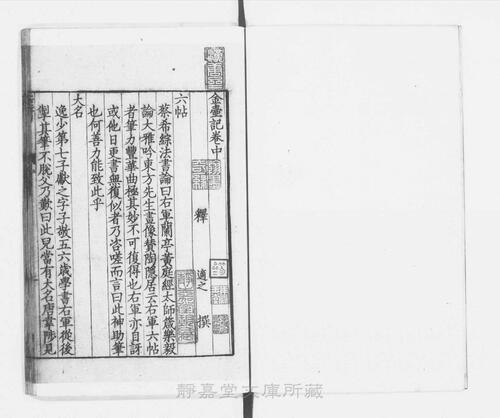 金臺記卷中
釋 適之 撰
六帖
蔡希綜法書論曰右軍蘭亭黃庭經太師箴樂毅
論大雅吟東方先生畫像賛陶隱居云右軍六帖
者筆力豐華曲極其妙不可復得也右軍亦自訝
或他日更書無復似者乃咨嗟而言曰此神助筆
也何善力能致此乎
大名
逸少第七子獻之字子敬五六歲學書右軍從後
掣其筆不脫父乃歎曰此兒當有大名唐韋陟見
靜嘉堂文庫所藏